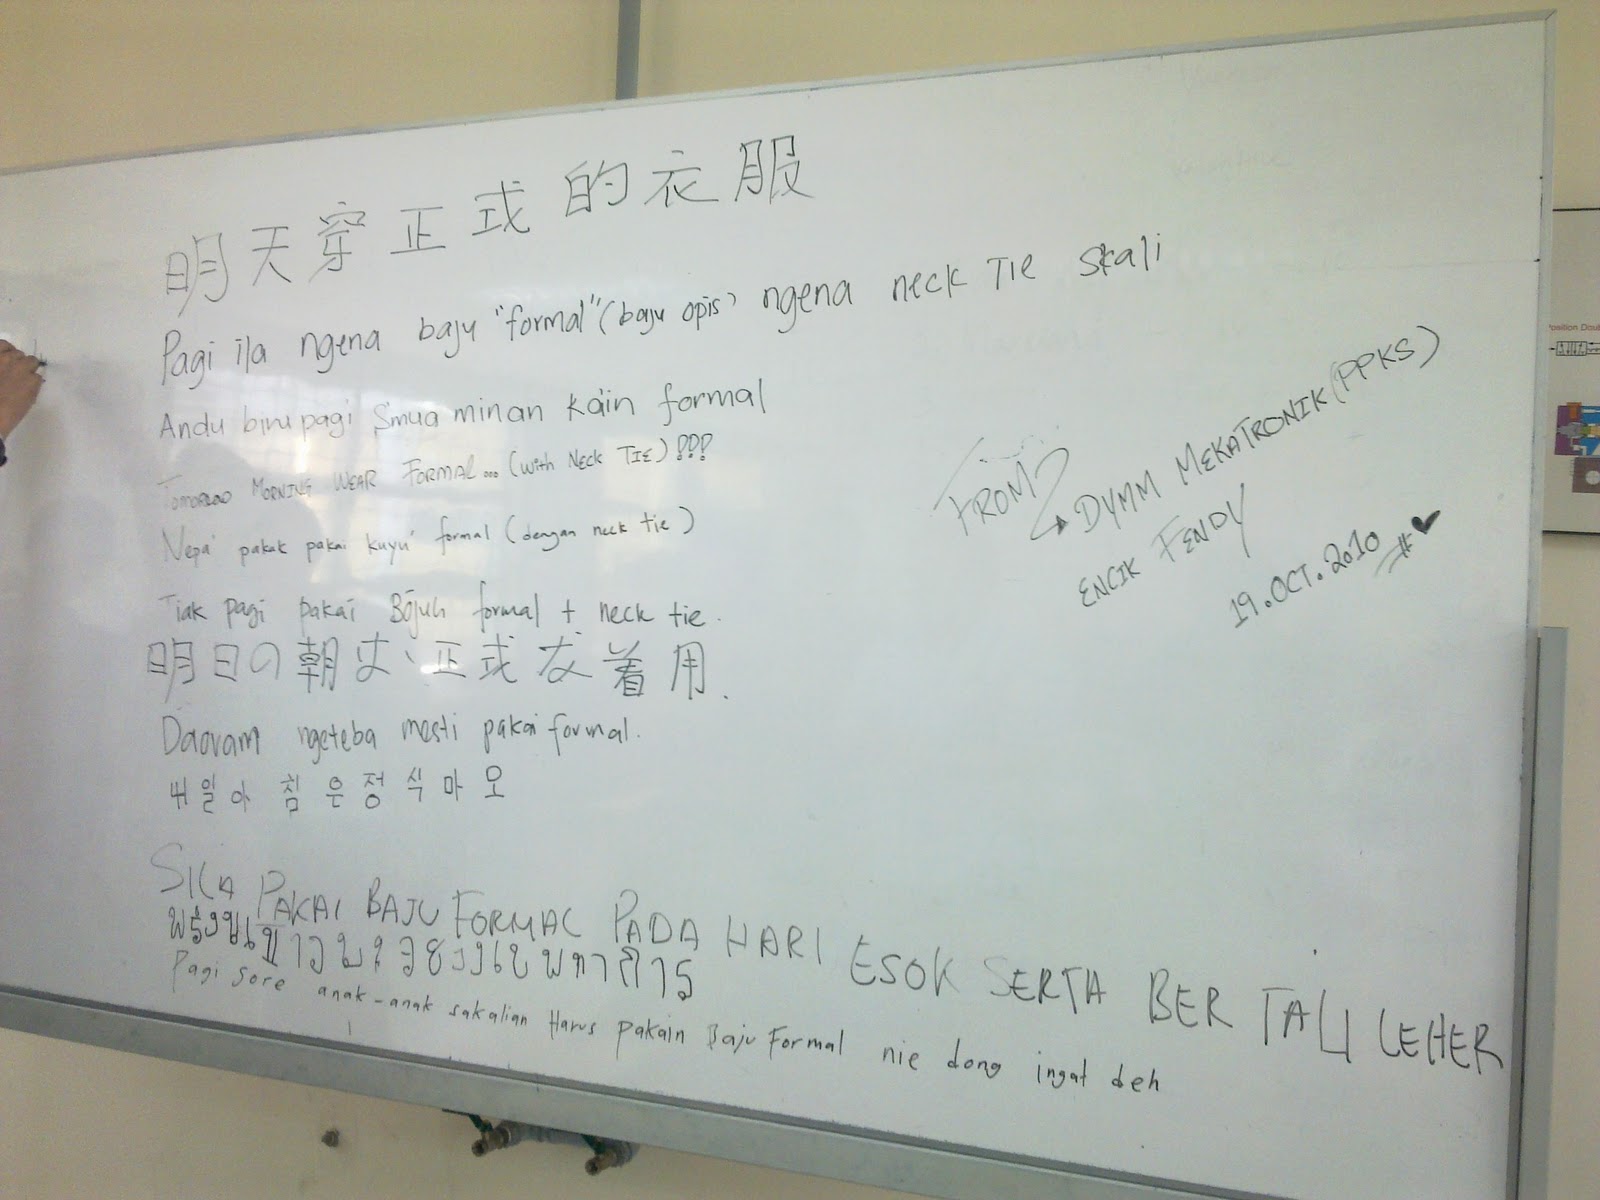 明天穿正式的衣服
Pagi ila ngena baju "formal" (baju opis) ngena neck Tie skali
Andu biru pagi Smua minan kain formal
Tomorow MORNING WEAR FORMAL... (with NECK TIE) !!!
Nepa' pakak pakai kuyu' formal (dengan neck tie)
Tiak pagi pakai Bojuh formal + neck tie.
明日の朝は、正式衣着用.
Daovam ngeteba mesti pakai formal.
내일아침은정식마오
SILA PAKAI BAJU FORMAL PADA HARI ESOK SERTA BER TALI LEHER
Pagi sore anak-anak sakalian Harus pakain Baju Formal nie dong ingat deh
FROM
DYMM MEKATRONIK (PPKS)
ENCIK FENDY
19.OCT.2010 #♥
Position Doub